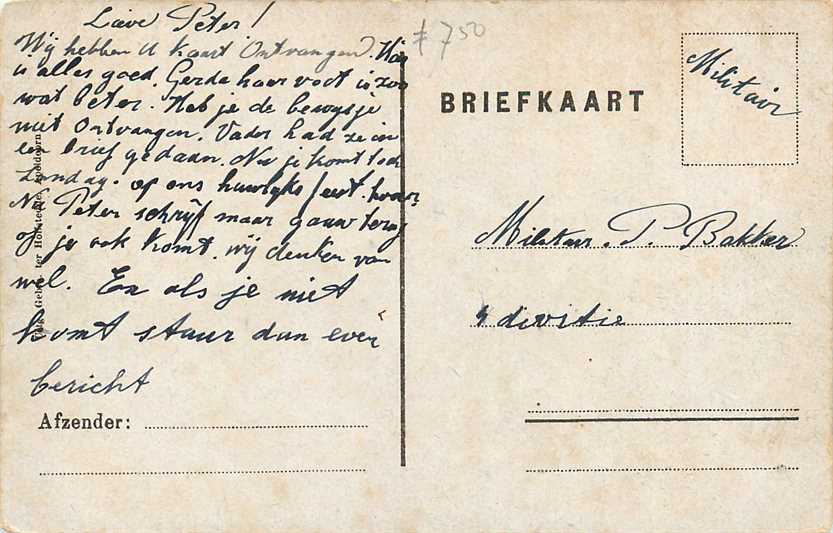 Lieve Peter!
Wij hebben U kaart Ontvangen. Hier
is alles goed. Gerda haar voet is zoo
wat beter. Heb je de bewysje
niet Ontvangen. Vader had ze in
een brief gedaan. Nu je komt toch
Zondag. op ons huwlyks feest. hoor
Nu Peter schrijf maar gauw terug
of je ook komt. wij denken van
wel. En als je niet
komt stuur dan even
bericht
Afzender:
Uitg. Gebrs. ter Hofstede, Apeldoorn
f 7 50
BRIEFKAART
Militair
Militair. P. Bakker
4 divisie